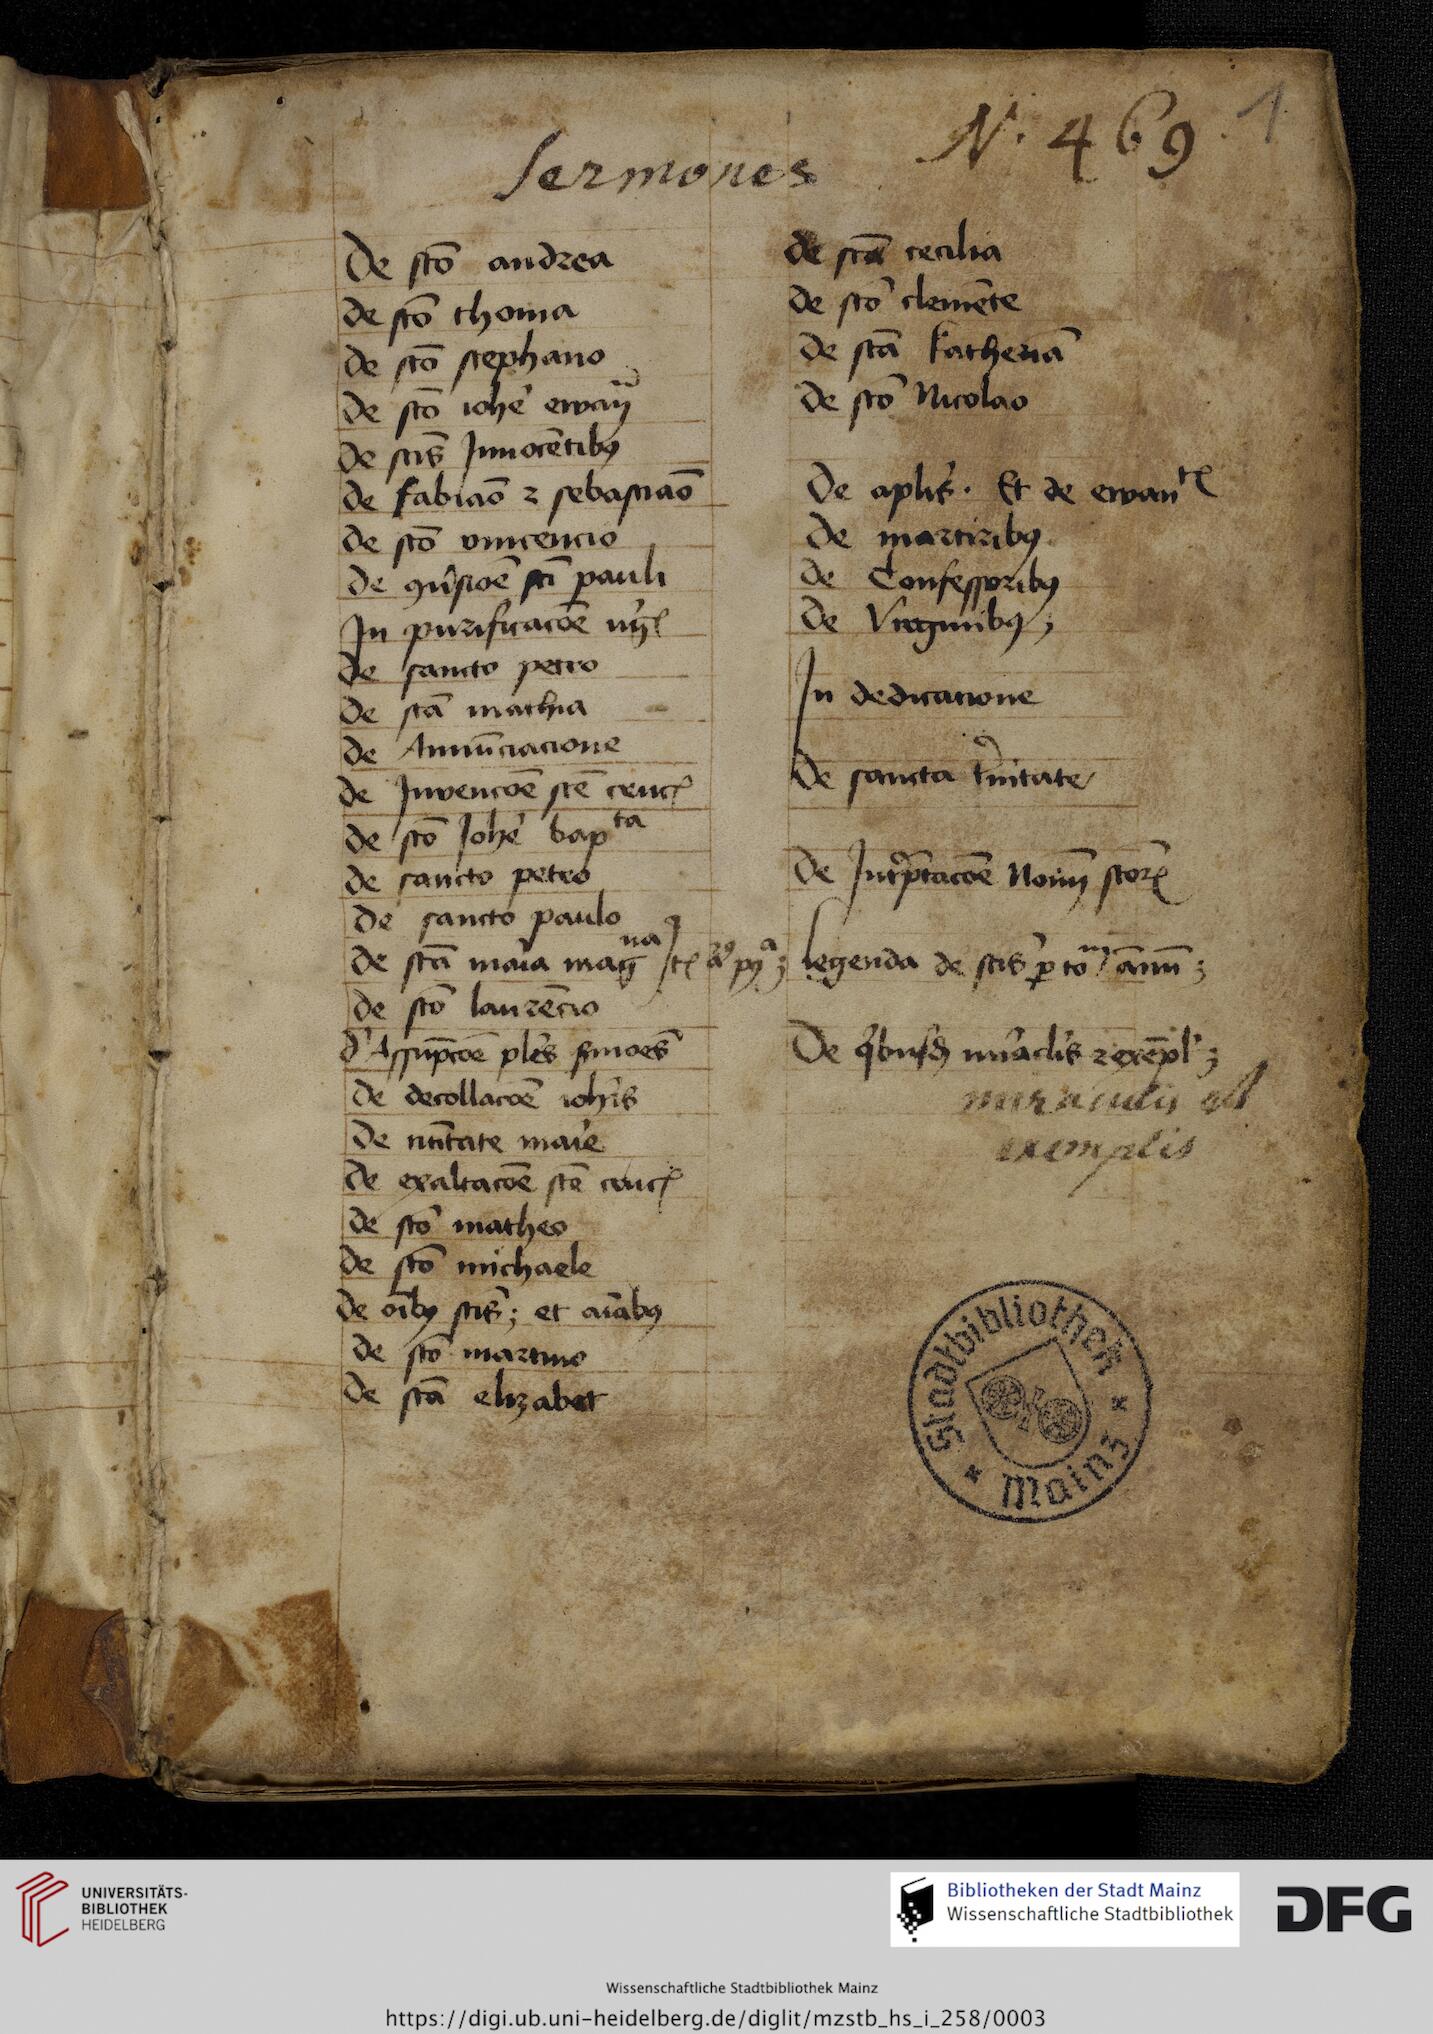 N. 469. 1
Sermones
De sco᷃ andrea
de sco᷃ thoma
de sco᷃ stephano
de sco᷃ iohe᷃ ewan᷃
de scis᷃ Innoce᷃tibꝫ
de fabia᷃o ⁊ sebastia᷃o
de sco᷃ vincencio
de ꝯu᷃sioe᷃ sci᷃ pauli
In purificacoe᷃
de sancto petro
de sca᷃ mathia
de Annu᷃ciacione
de Invencoe᷃ sce᷃ cruc᷃
de sco᷃ Iohe᷃ bapᵗᵃ
de sancto petro
de sancto paulo
de sca᷃ ma᷃ia magⁿᵃ
de sco᷃ laure᷃cio
d᷃ Assupc᷃oe᷃ ples᷃ s᷃moes᷃
de decollacoe᷃ ioh᷃is
de nti᷃tate ma᷃ie
de exaltacoe᷃ sce᷃ cruc᷃
de sco᷃ matheo
de sco᷃ michaele
de oi᷃bꝫ scis᷃; et ai᷃abꝫ
de sco᷃ martino
de sca᷃ elizabet
de sca᷃ cecilia
de sco᷃ cleme᷃te
de sca᷃ katheri᷃a
de sco᷃ Nicolao
De aplis᷃. Et de ewan᷃
De martiribꝫ
de Confessoribꝫ
de Virginibꝫ;
In dedicacione
De sancta t᷃nitate
De Int᷃p᷃tacoe᷃ Noi᷃m scor᷃
legenda de scis᷃ ꝑ to᷃ annu᷃;
De q᷃busd᷃ mi᷃aclis᷃ ⁊ exe᷃pl᷃;
miraculis et
exemplis
Stadtbibliothek
Mainz
UNIVERSITÄTS-
BIBLIOTHEK
HEIDELBERG
Bibliotheken der Stadt Mainz
Wissenschaftliche Stadtbibliothek
DFG
Wissenschaftliche Stadtbibliothek Mainz
https://digi.ub.uni-heidelberg.de/diglit/mzstb_hs_i_258/0003